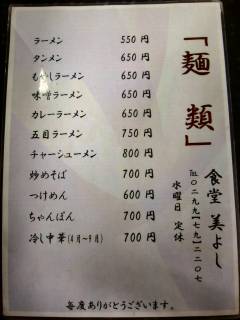 「麺類」
食堂 美よし
℡０２９９【７９】２２０７
水曜日 定休
ラーメン 550 円
タンメン 650 円
もやしラーメン 650 円
味噌ラーメン 650 円
カレーラーメン 650 円
五目ラーメン 750 円
チャーシューメン 800 円
炒めそば 700 円
つけめん 600 円
ちゃんぽん 700 円
冷し中華(4月～9月) 700 円
毎度ありがとうございます。